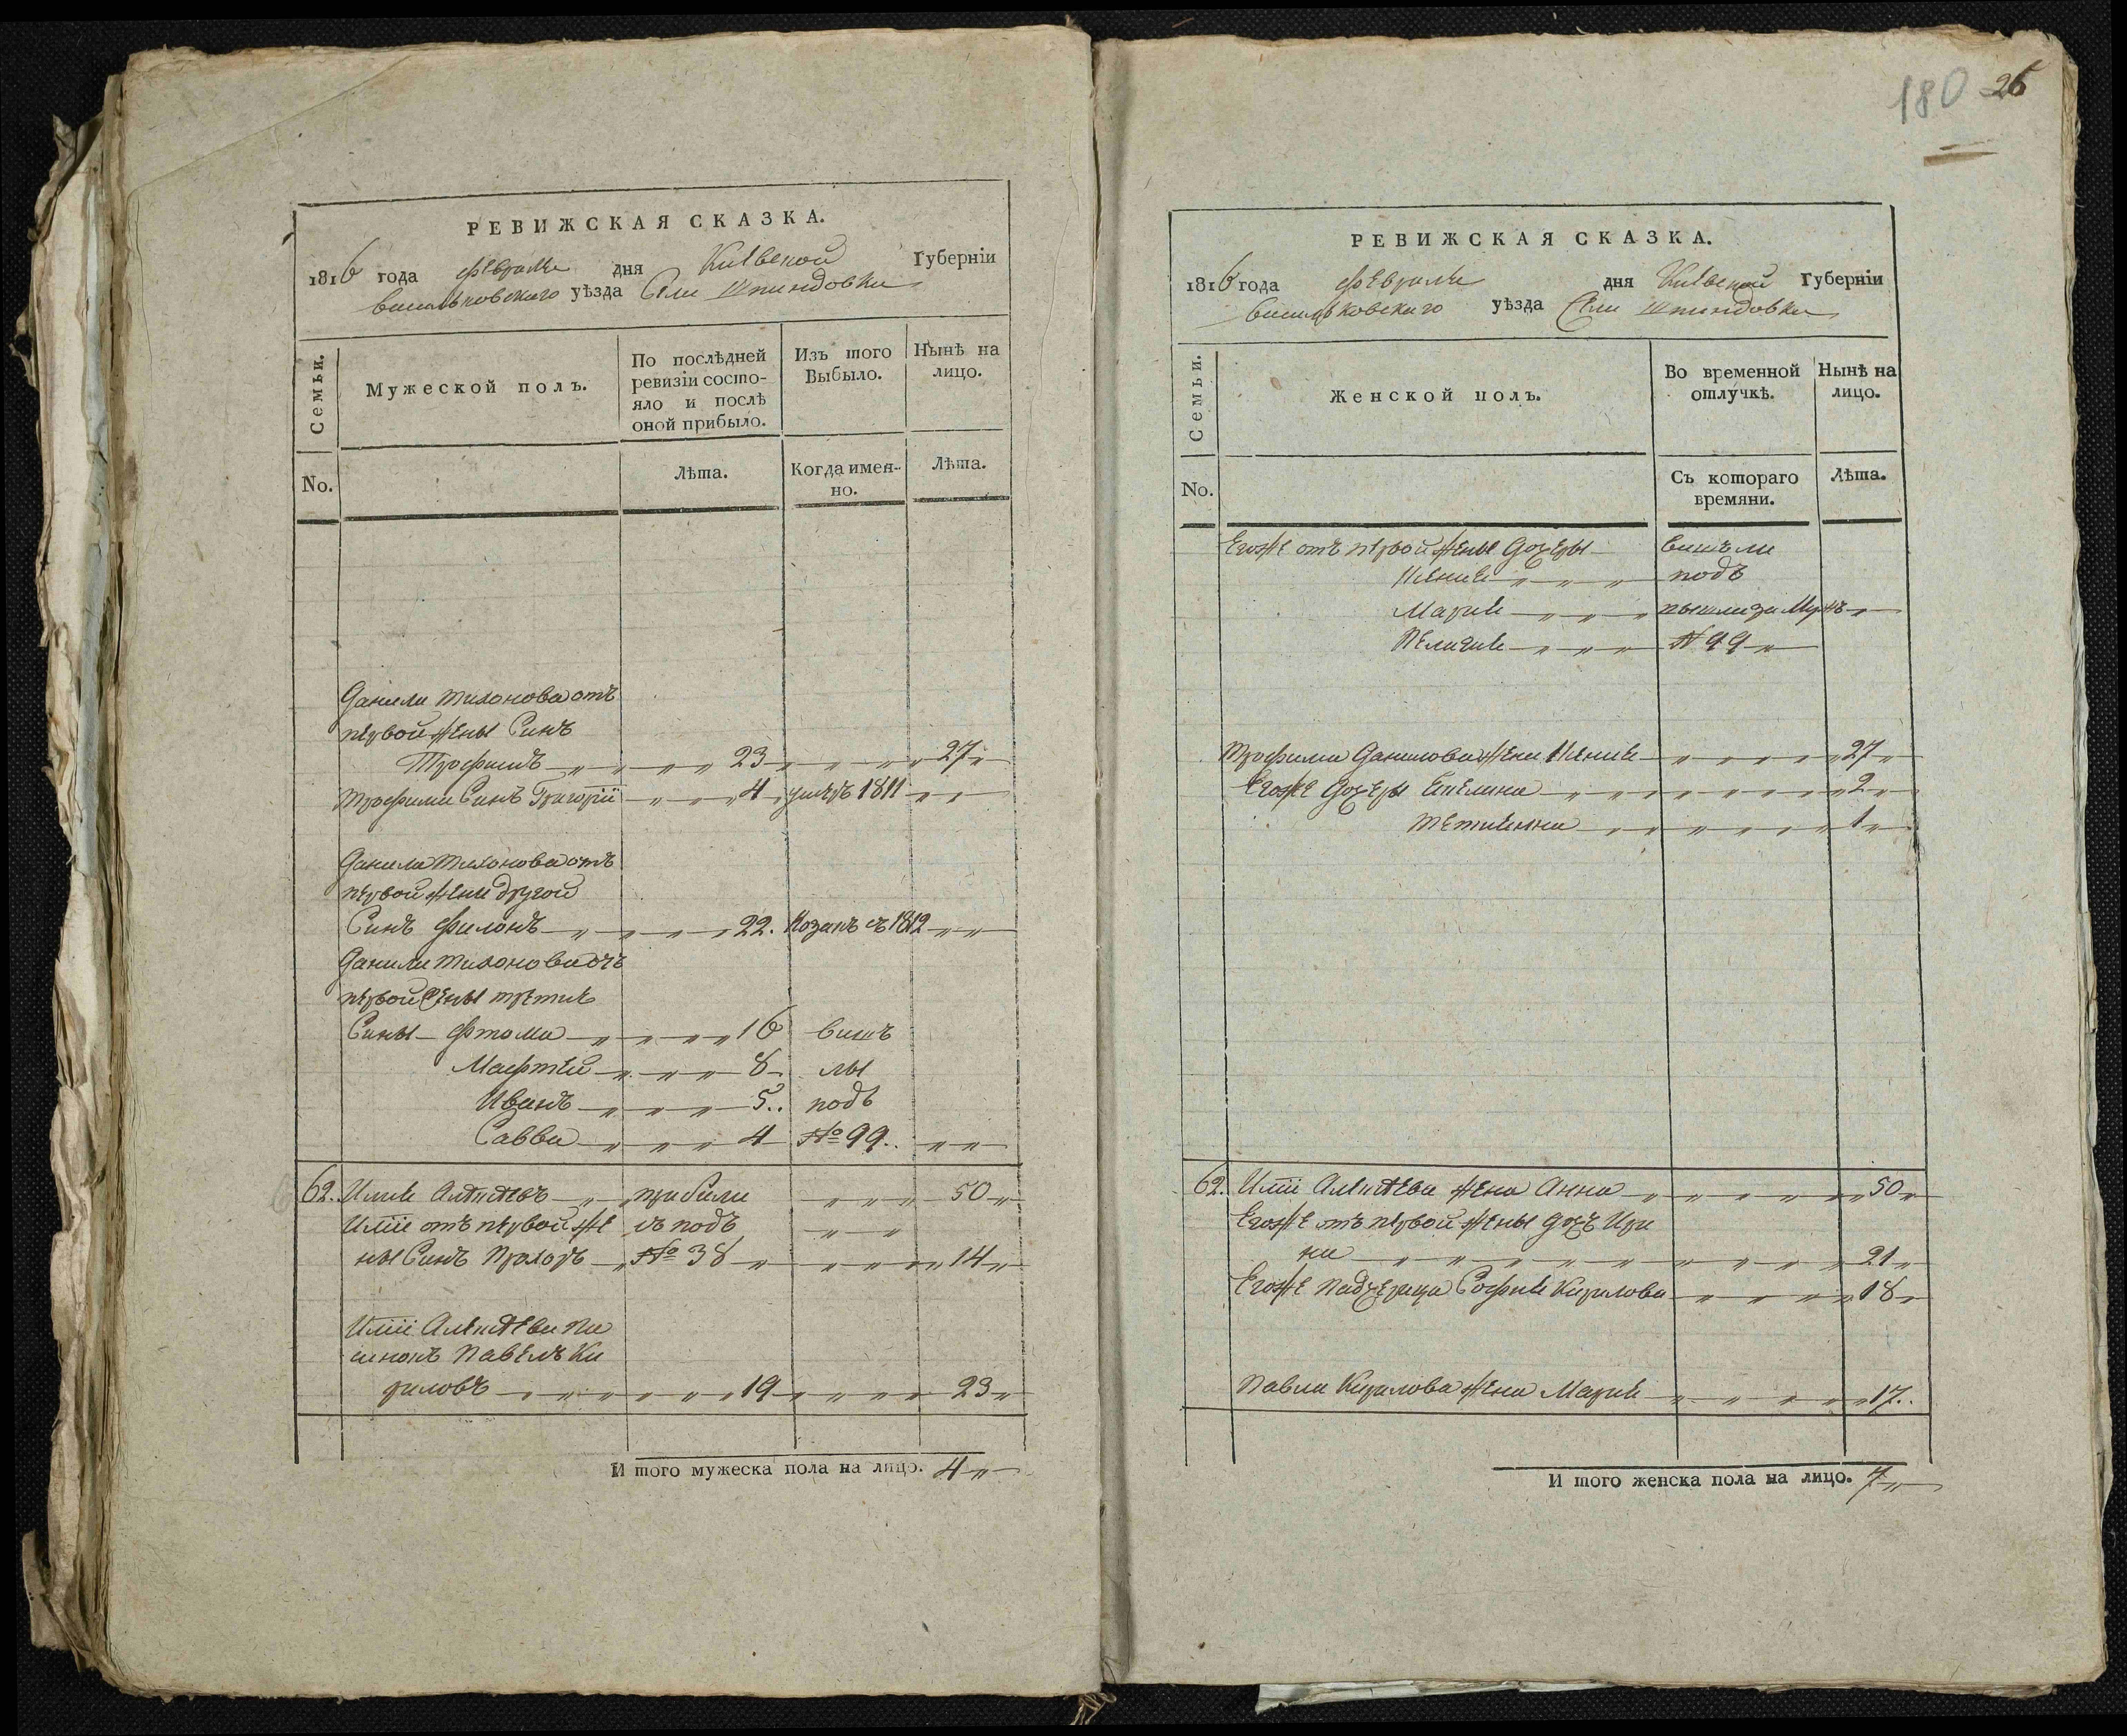 180 26
РЕВИЖСКАЯ СКАЗКА.
1816 года февраля дня Киевской Губерніи
васильковского уѣзда Села Шпиндовки
Семьи.
Мужеской полъ.
По послѣдней ревизіи состояло и послѣ оной прибыло.
Изъ того Выбыло.
Нынѣ на лицо.
No.
Лѣта.
Когда именно.
Лѣта.
Данила тихонова отъ
первой жены Синъ
Трофимъ 23 27
трофима Синъ Григорій 4 умеръ 1811
Данила тихонова отъ
первой жени другой
Синъ филонъ 22. Козакъ съ 1812
Данила тихонова отъ
первой жены третие
Сины фтома 16 виш
Мафтей 8 лы
Иванъ 5 подъ
Савва 4 № 99
62. Илия Алексеевъ прибили 50
Иліи отъ первой же съ подъ
ны Синъ Прохоръ № 38 14
Иліи Алексеева па
синокъ Павелъ Ки
риловъ 19 23
И того мужеска пола на лицо. 4
РЕВИЖСКАЯ СКАЗКА.
1816 года февраля дня Киевской Губерніи
васильковского уѣзда Села Шпиндовки
Семьи.
Женской полъ.
Во временной отлучкѣ.
Нынѣ на лицо.
No.
Съ котораго времяни.
Лѣта.
Егоже отъ первой жены дочеры
Ксения подъ
Мария за Мужъ
Пелагия № 99
трофима Данилова жена Ксения 27
Егоже дочеры 2
тетиянна 1
62. Иліи Алексеева жена Анна 50
Егоже отъ первой жены дочъ Ири
на 21
Егоже падчерица София Кирилова 18
Павла Кирилова жена Мария 17
И того женска пола на лицо. 7